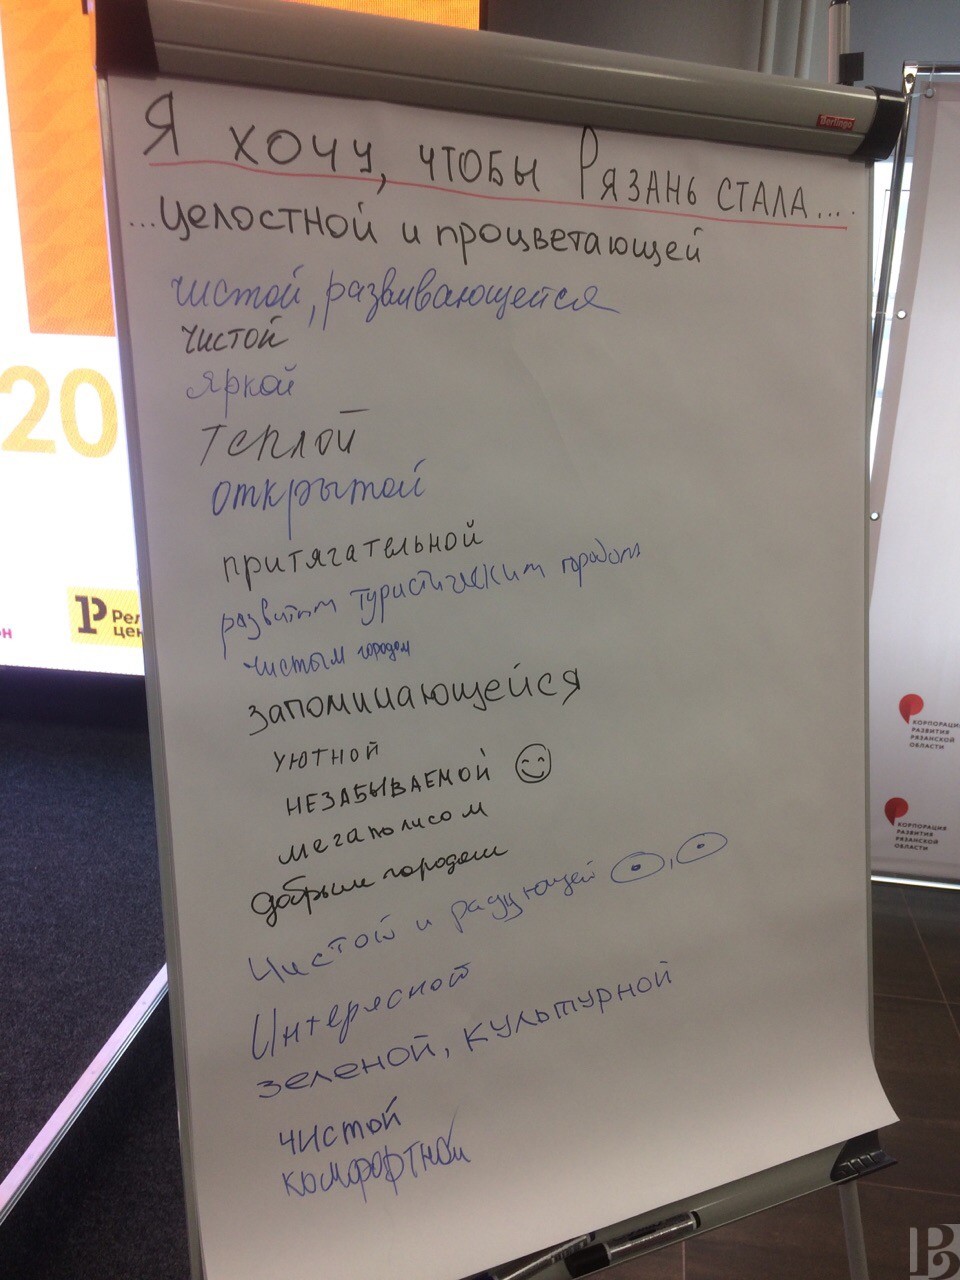 Berlingo
Я ХОЧУ, ЧТОБЫ РЯЗАНЬ СТАЛА....
...целостной и процветающей
чистой, развивающейся
чистой
яркой
теплой
открытой
притягательной
развитым туристическим городом
чистым городом
запоминающейся
уютной
НЕЗАБЫВАЕМОЙ
мегаполисом
добрым городом
Чистой и радующей
Интересной
зеленой, культурной
чистой
комфортной
20
Р
КОРПОРАЦИЯ
РАЗВИТИЯ
РЯЗАНСКОЙ
ОБЛАСТИ
КОРПОРАЦИЯ
РАЗВИТИЯ
РЯЗАНСКОЙ
ОБЛАСТИ